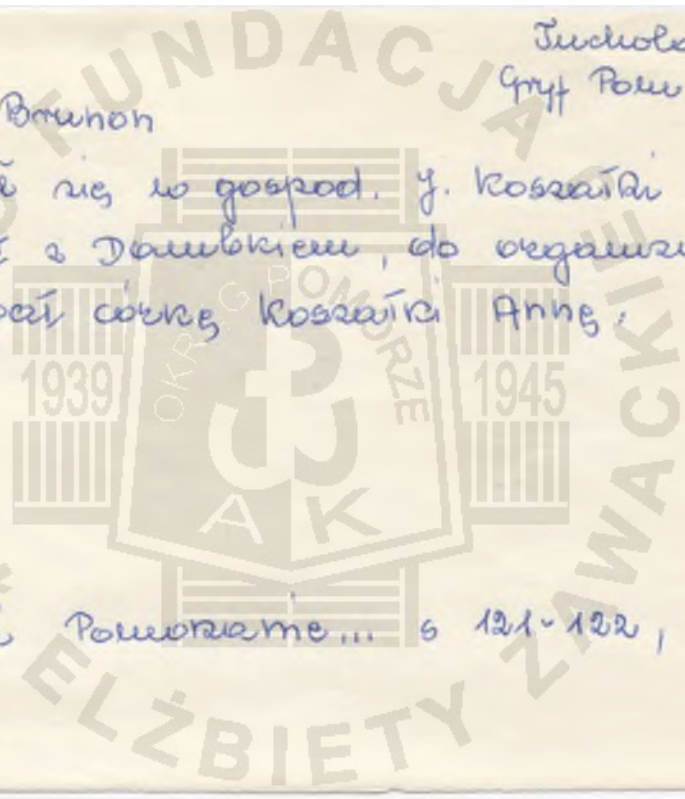 Tuchola
Gryf Pom
Brunon
się w gospod. J. Koszałki
z Dambkiem, do organiz
córkę Koszałki Annę.
Pomorzanie... s 121-122,
FUNDACJA
ELŻBIETY ZAWACKIEJ
OKRĘG POMORZE
1939
1945
AK